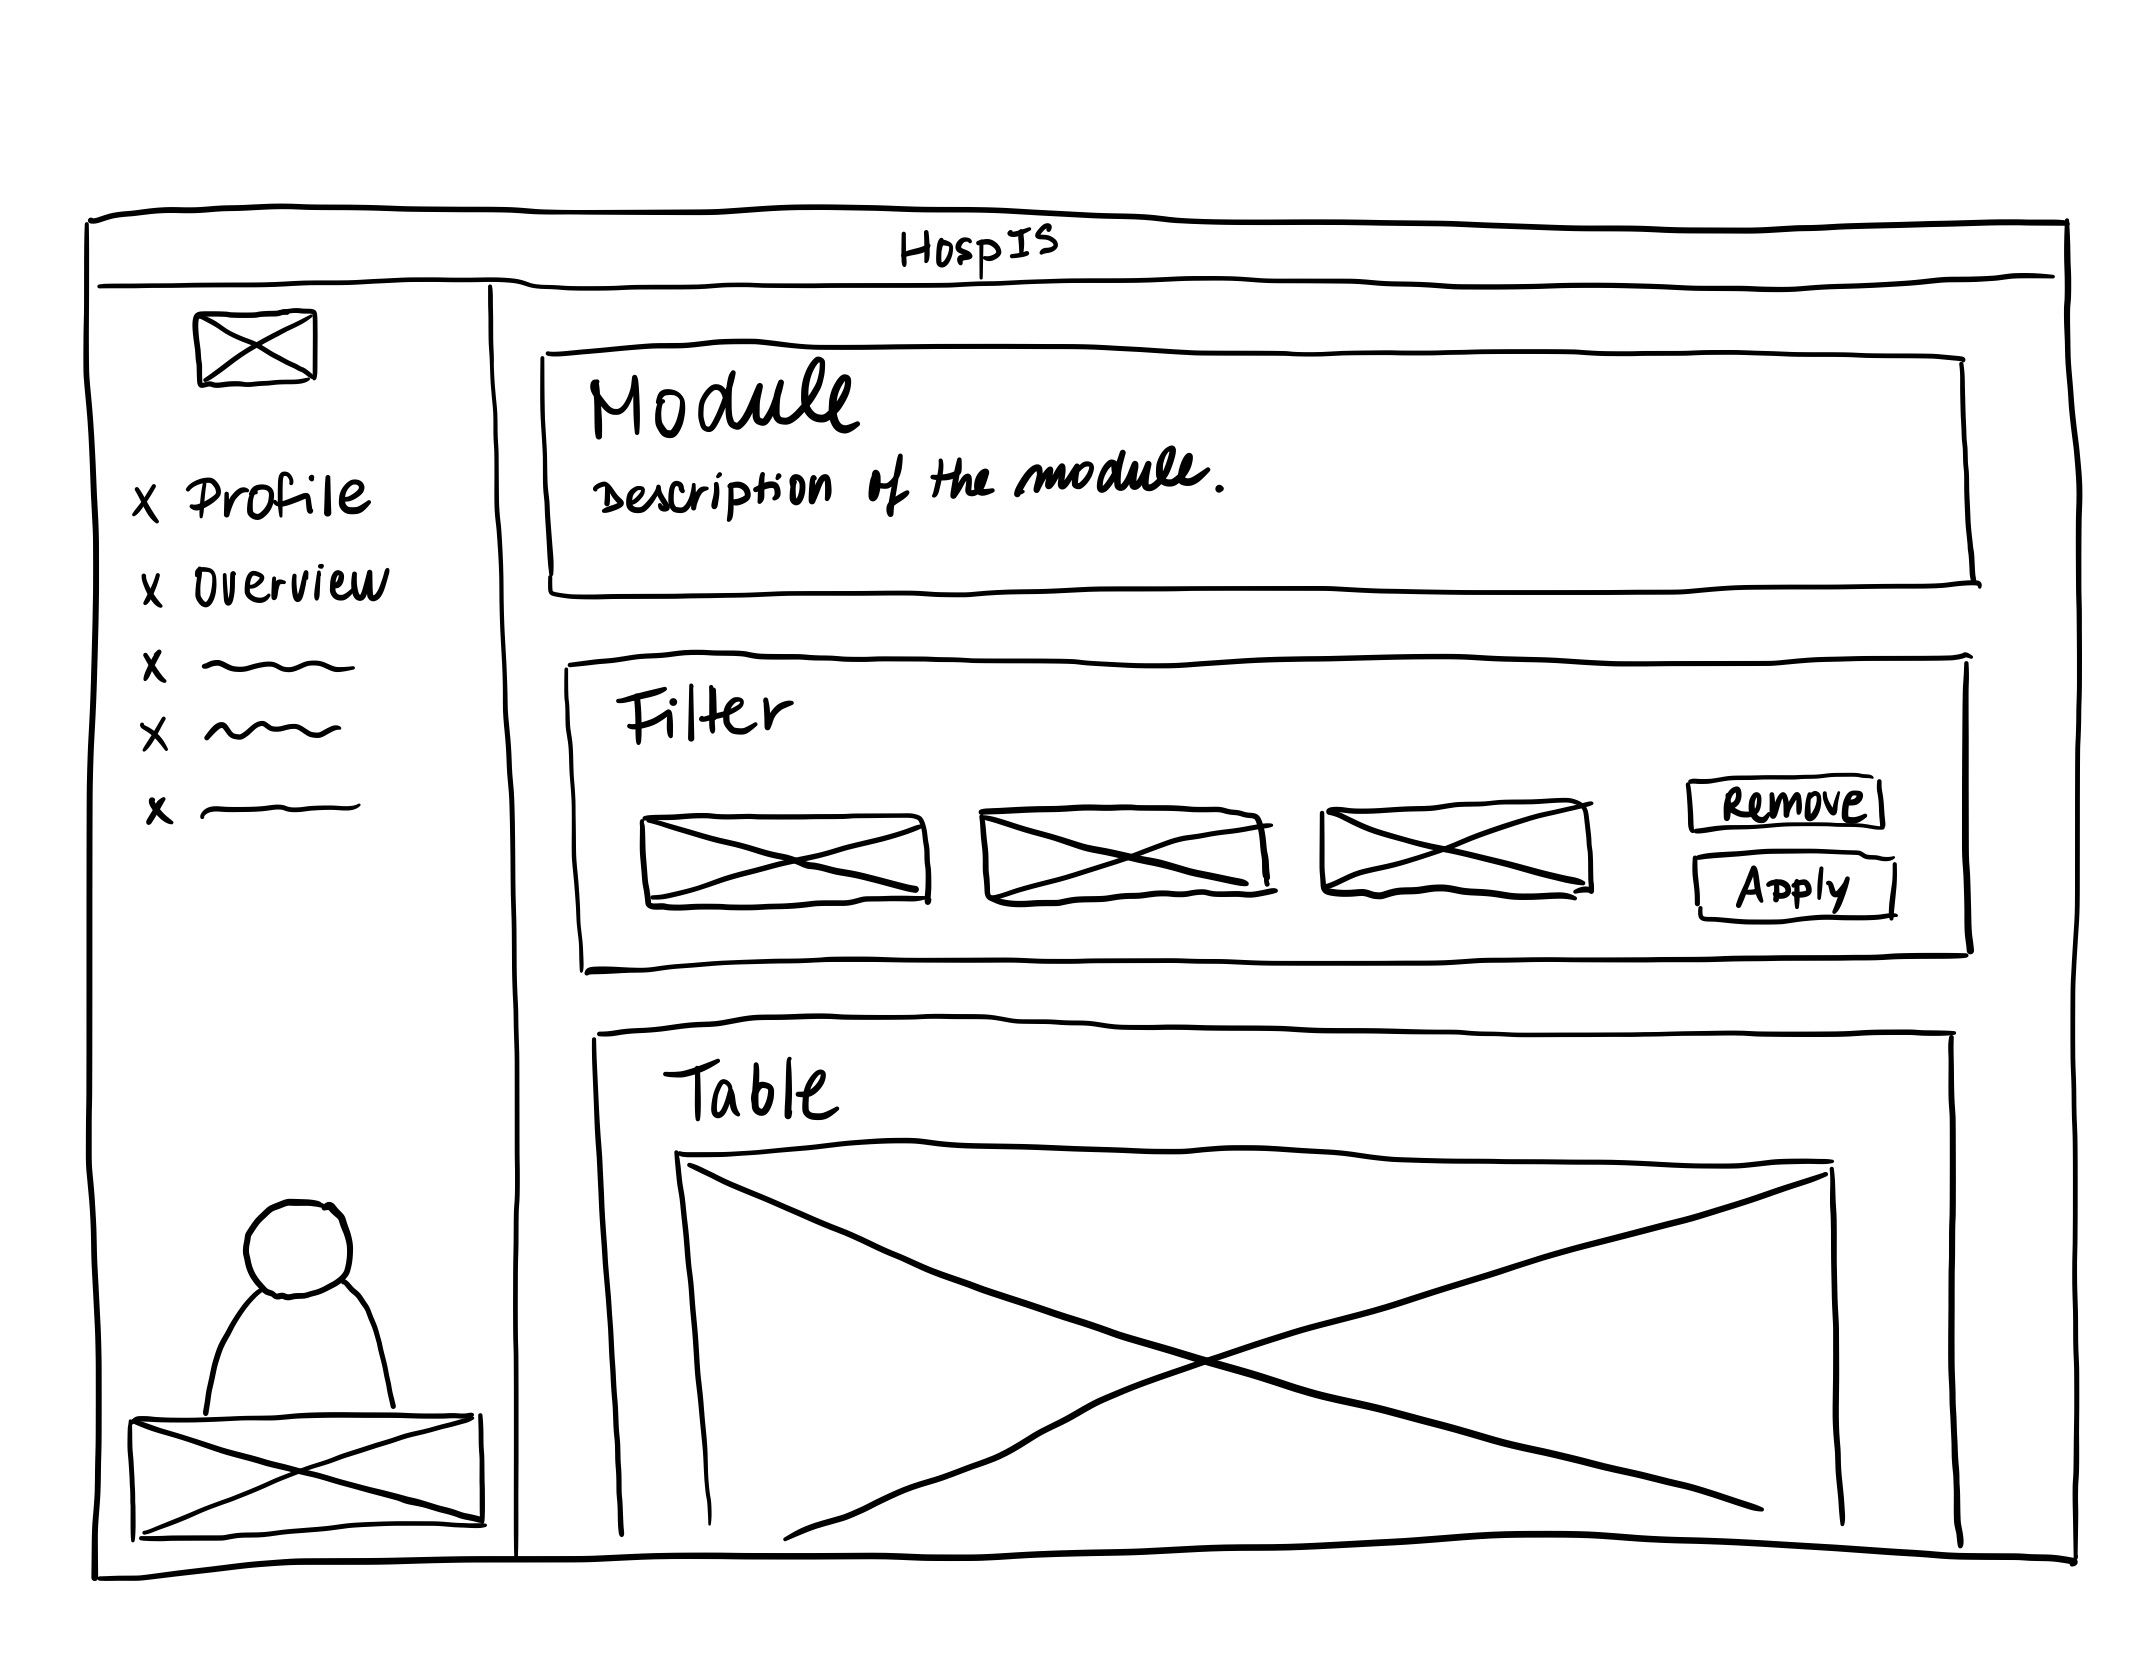 HospIS
Profile
Overview
Module
Description of the module.
Filter
Remove
Apply
Table